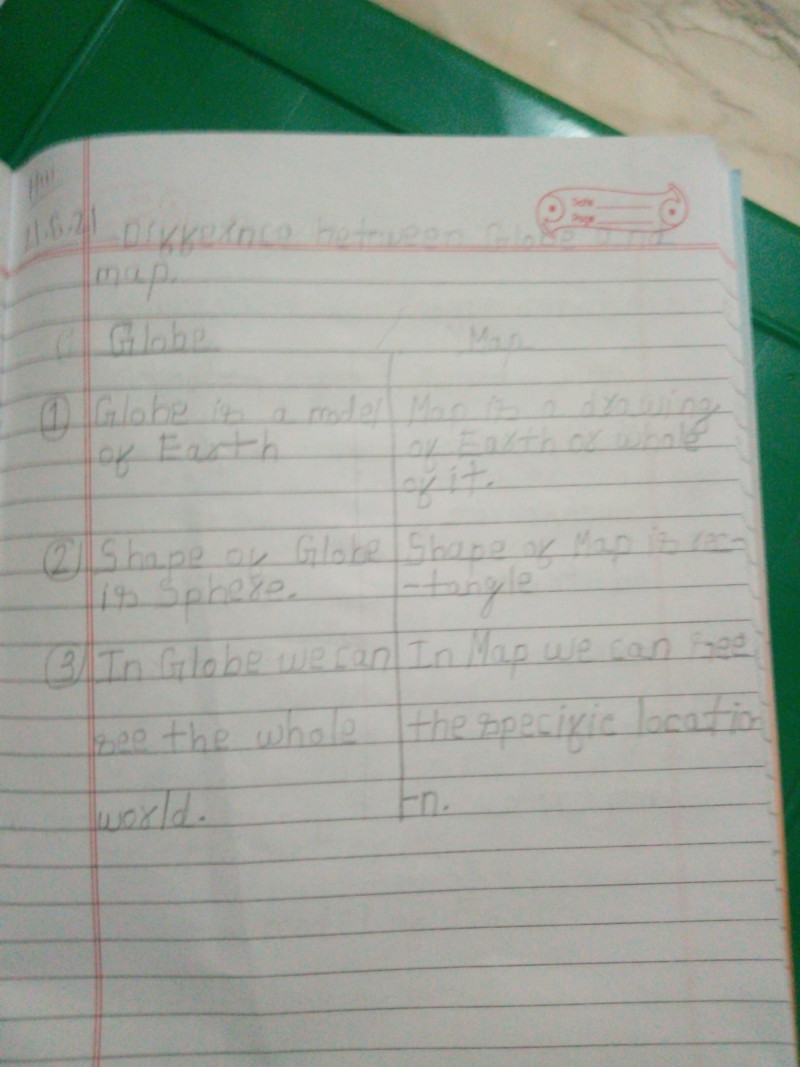 HW
21.6.21 Differnce between Globe and
Date
Page
map.
Globe Map
① Globe is a model Map is a drawing
of Earth of Earth or whole
of it.
② Shape of Globe Shape of Map is rec-
is Sphere. -tangle
③ In Globe we can In Map we can see
see the whole the specific location
world. -n.